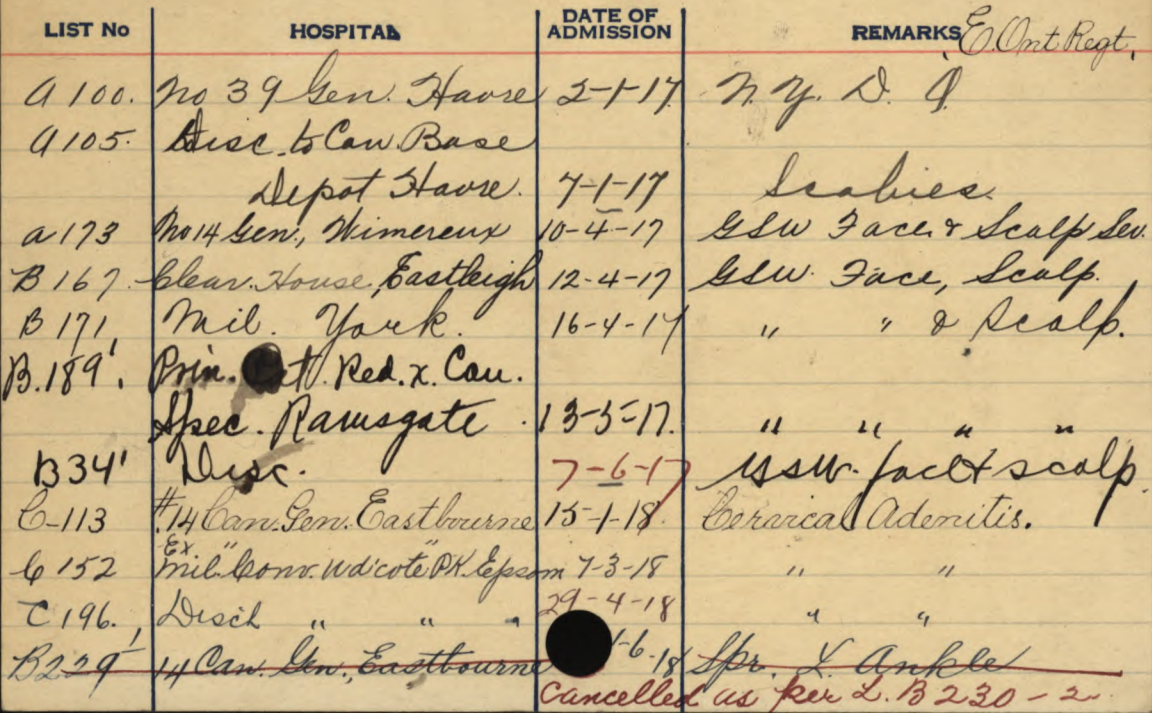 LIST No HOSPITAL DATE OF ADMISSION REMARKS E. Ont Regt.
A 100. No 39 Gen. Havre 2-1-17 N. Y. D.
A 105. Disc. to Can Base
Depot Havre. 7-1-17 Scabies.
a 173 No 14 Gen, Wimereux 10-4-17 GSW Face & Scalp Sev.
B 167. Clear. House, Eastleigh 12-4-17 GSW. Face, Scalp.
B 171, Mil. York. 16-4-17 " " & Scalp.
B. 189'. Prin. Pat. Red. x. Can.
Spec. Ramsgate. 13-5-17. " " " "
B34' Disc. 7-6-17 GSW. face & scalp.
C-113 #14 Can. Gen. Eastbourne 15-1-18. Cervical Adenitis.
C 152 Mil. Conv. Wd'cote PK. Epsom 7-3-18 " "
C 196. Disch " " " 29-4-18 " "
B229' 14 Can. Gen., Eastbourne -6-18 Spr. L. Ankle
Cancelled as per L. B 230-2